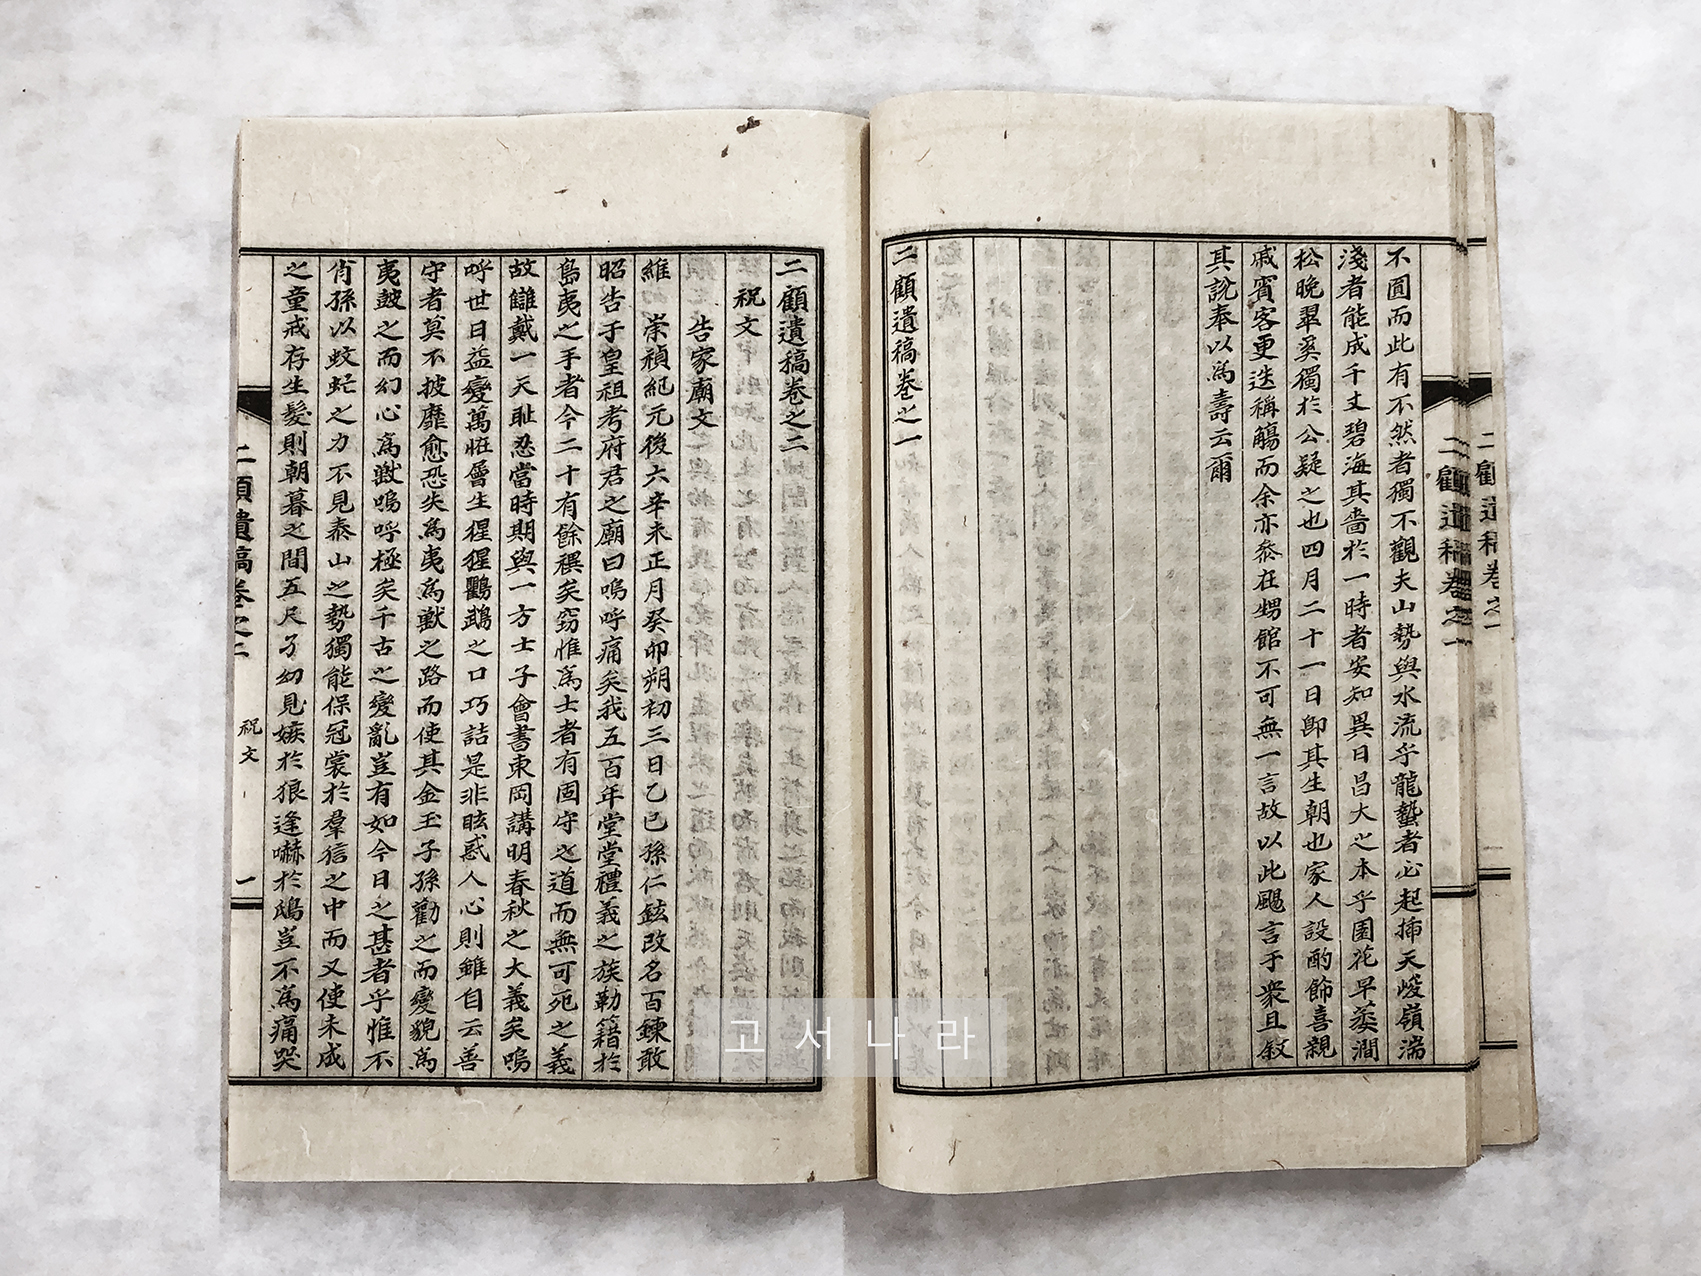 不圓而此有不然者獨不觀夫山勢與水流乎龍蟄者必起揷天峻嶺湍
淺者能成千丈碧海其嗇於一時者安知異日昌大之本乎園花早萎澗
松晚翠奚獨於公疑之也四月二十一日卽其生朝也家人設酌飾喜親
戚賓客更迭稱觴而余亦叅在甥館不可無一言故以此颺言于衆且敍
其說奉以爲壽云爾
二顧遺稿卷之一
二顧遺稿卷之二
祝文
告家廟文
維 崇禎紀元後六辛未正月癸卯朔初三日乙巳孫仁鉉改名百鍊敢
昭告于皇祖考府君之廟曰嗚呼痛矣我五百年堂堂禮義之族勒籍於
島夷之手者今二十有餘禩矣窃惟爲士者有固守之道而無可死之義
故讎戴一天耻忍當時期與一方士子會書東岡講明春秋之大義矣嗚
呼世日益變萬恠層生猩猩鸚鵡之口巧詰是非眩惑人心則雖自云善
守者莫不披靡愈恐失爲夷爲獸之路而使其金玉子孫勸之而變貌爲
夷皷之而幻心爲獸嗚呼極矣千古之變亂豈有如今日之甚者乎惟不
肖孫以蚊虻之力不見泰山之勢獨能保冠裳於羣信之中而又使未成
之童戒存生髮則朝暮之間五尺孑幼見嫉於狼逢嚇於鴟豈不爲痛哭
二顧遺稿卷之二 祝文 一
二顧遺稿卷之一
二顧遺稿卷之一
고서나라